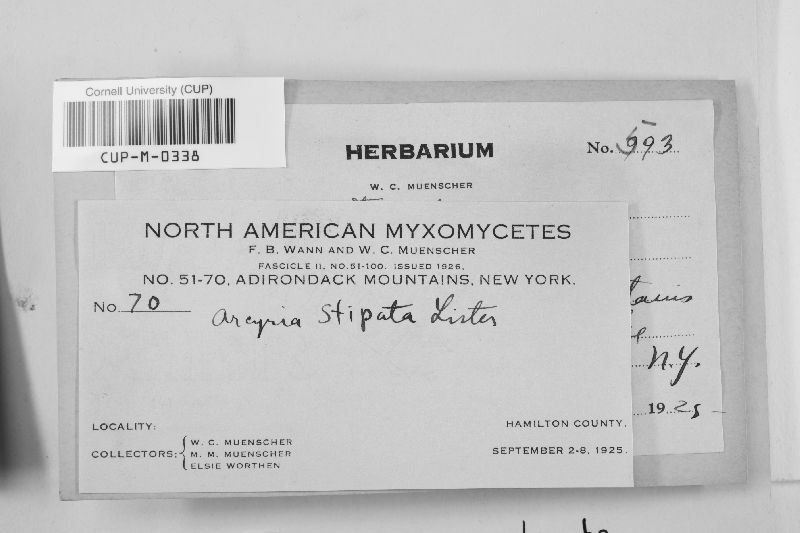 Cornell University (CUP)
CUP-M-0338
HERBARIUM
No. 593
W. C. MUENSCHER
NORTH AMERICAN MYXOMYCETES
F. B. WANN AND W. C. MUENSCHER
FASCICLE II, NO. 51-100. ISSUED 1926.
NO. 51-70, ADIRONDACK MOUNTAINS, NEW YORK.
No. 70 Arcyria Stipata Lister
N.Y.
1925
LOCALITY:
HAMILTON COUNTY.
COLLECTORS:
W. C. MUENSCHER
M. M. MUENSCHER
ELSIE WORTHEN
SEPTEMBER 2-8, 1925.